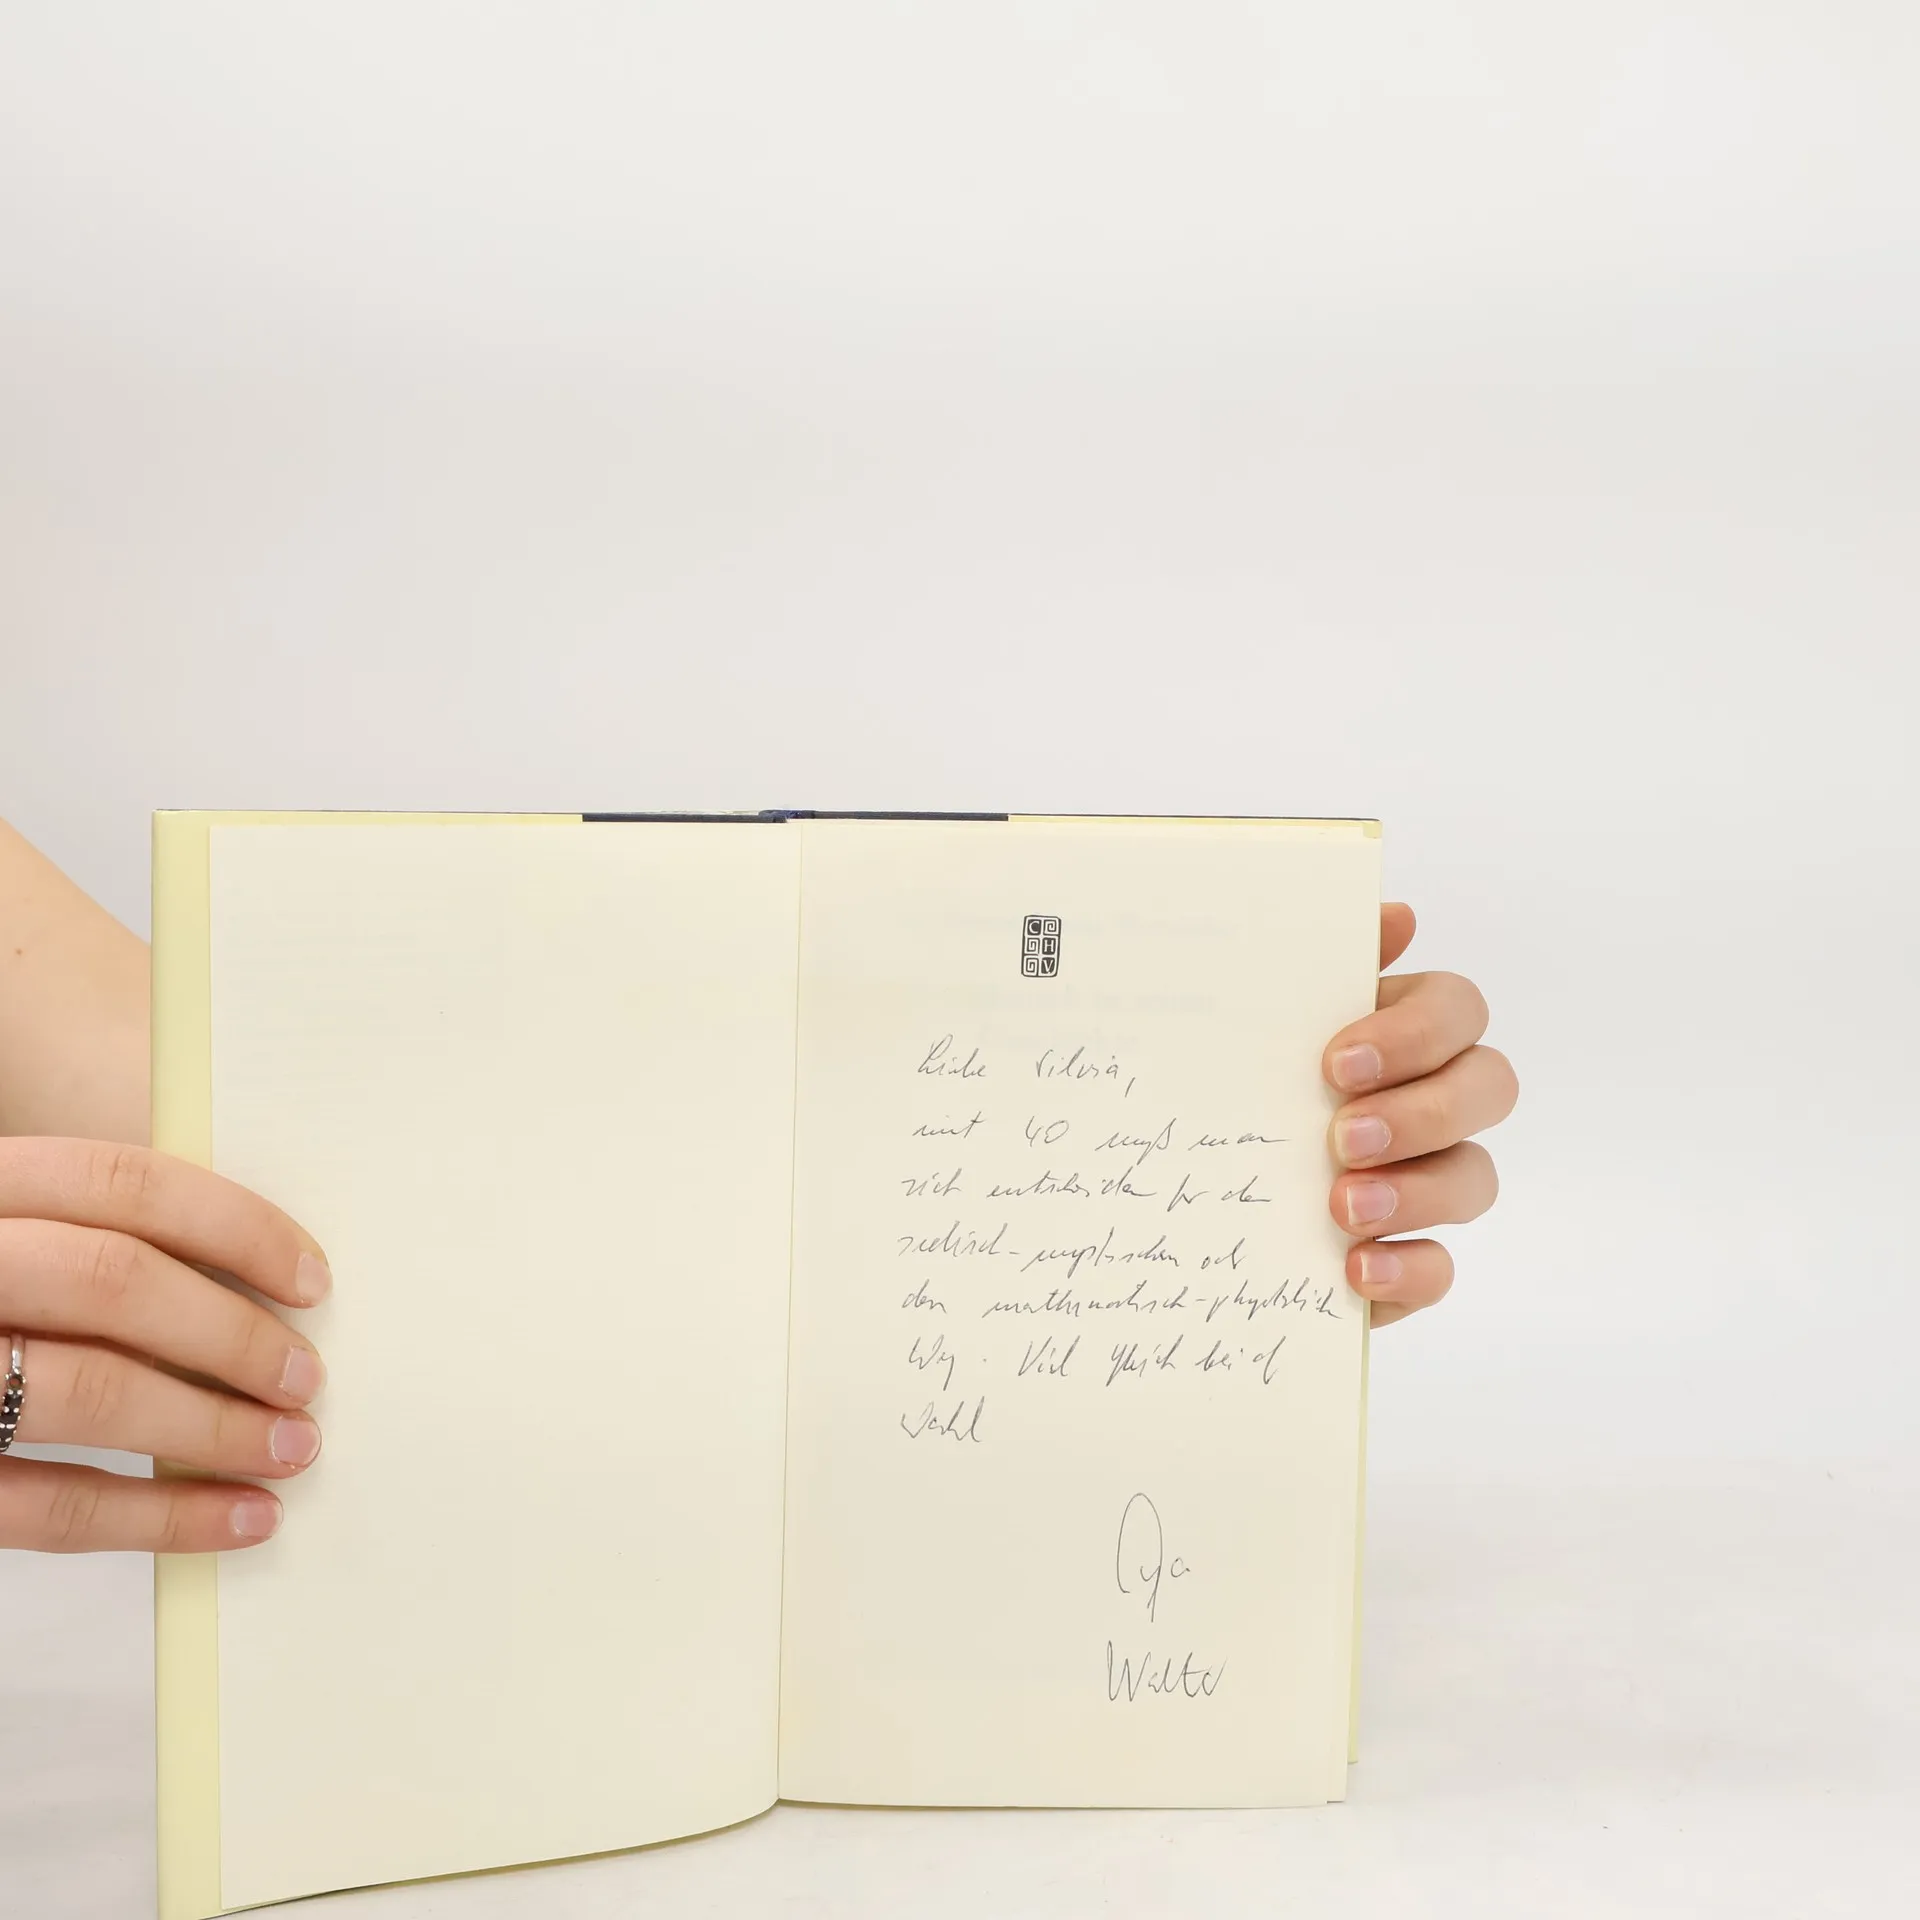 C
H
V
Liebe Silvia,
mit 40 muß man
sich entscheiden für den
seelisch-mystischen oder
den mathematisch-physikalisch
Weg. Viel Glück bei der
Wahl
Walter